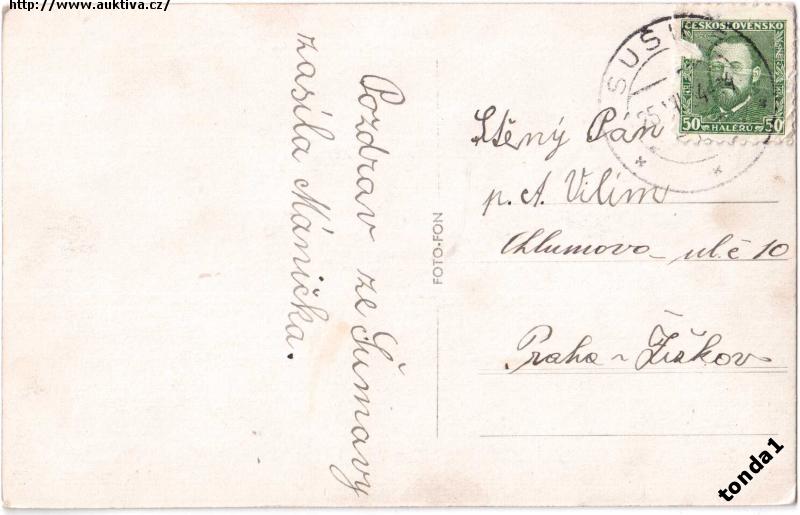 http://www.auktiva.cz/
Pozdrav ze Šumavy
zasílá Mánička.
FOTO-FON
ČESKOSLOVENSKO
50 HALÉŘŮ 50
Ctěný Pán
p. A. Vilím
Chlumova ul. č 10
Praha - Žižkov
tonda1